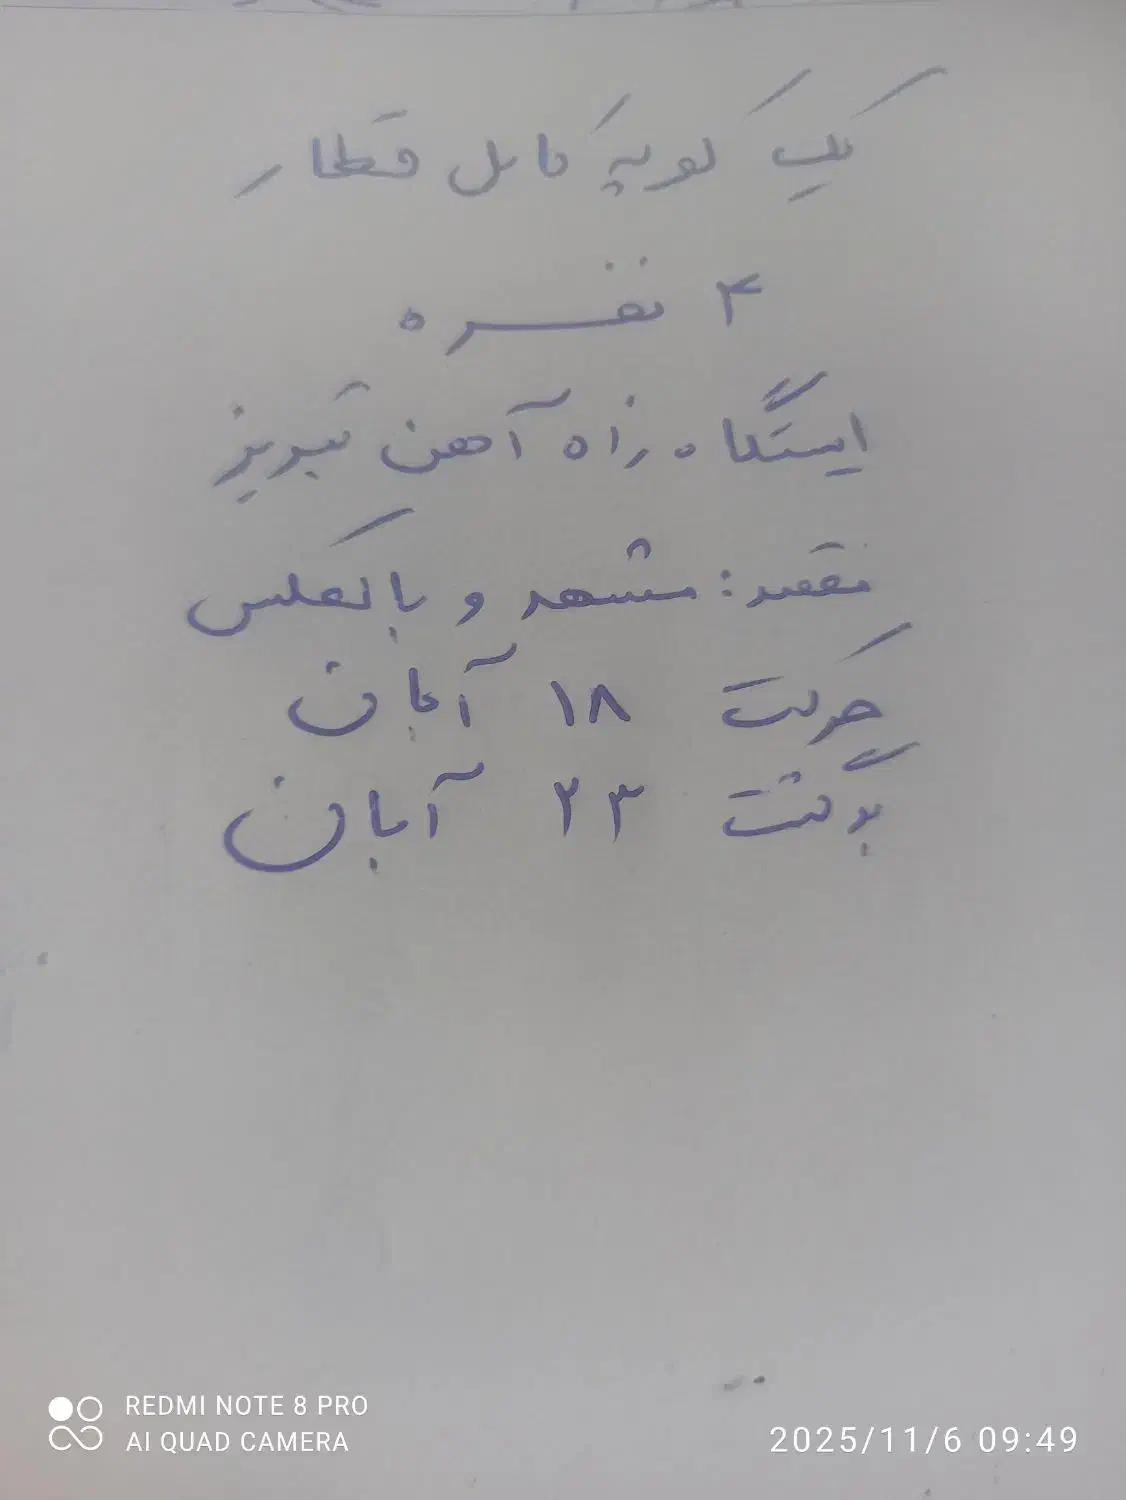 یک کوپه کامل قطار
۴ نفره
ایستگاه راه آهن تبریز
مقصد: مشهد و بالعکس
حرکت ۱۸ آبان
برگشت ۲۳ آبان
REDMI NOTE 8 PRO
AI QUAD CAMERA
2025/11/6 09:49